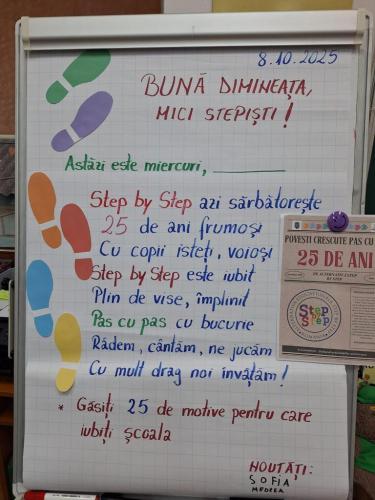 8.10.2025
BUNĂ DIMINEAȚA,
MICI STEPIȘTI!
Astăzi este miercuri, ________
Step by Step azi sărbătorește
25 de ani frumoși
Cu copii isteți, voioși
Step by Step este iubit
Plin de vise, împlinit
Pas cu pas cu bucurie
Râdem, cântăm, ne jucăm
Cu mult drag noi învățăm!
* Găsiți 25 de motive pentru care
iubiți școala
NOUTĂȚI:
SOFIA
MEDEEA
POVESTI CRESCUTE PAS CU
25 DE ANI
DE ALTERNATIVA STEP
BY STEP
Step
by
Step